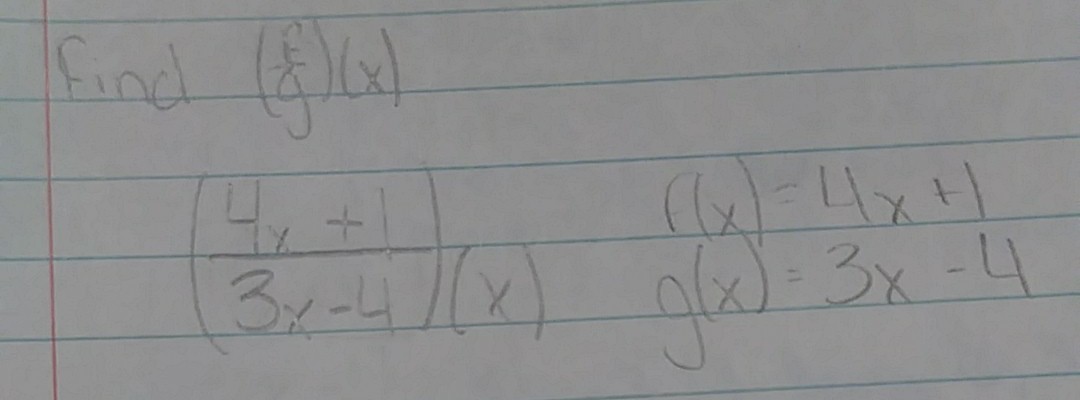 Find (f/g)(x)
(4x + 1 / 3x - 4)(x)
f(x) = 4x + 1
g(x) = 3x - 4